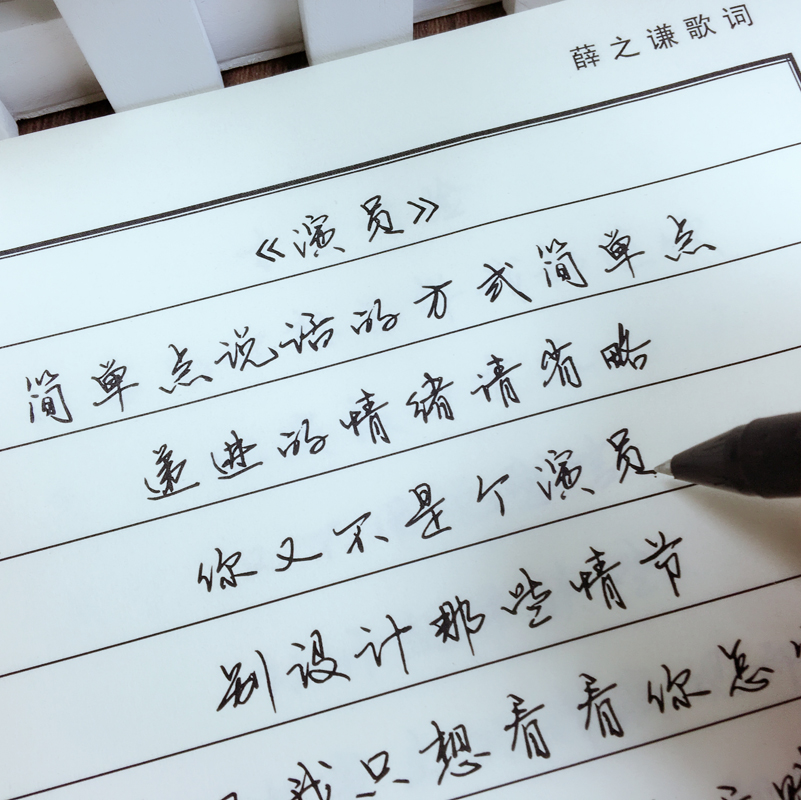 薛之谦歌词
《演员》
简单点说话的方式简单点
递进的情绪请省略
你又不是个演员
别设计那些情节
我只想看看你怎